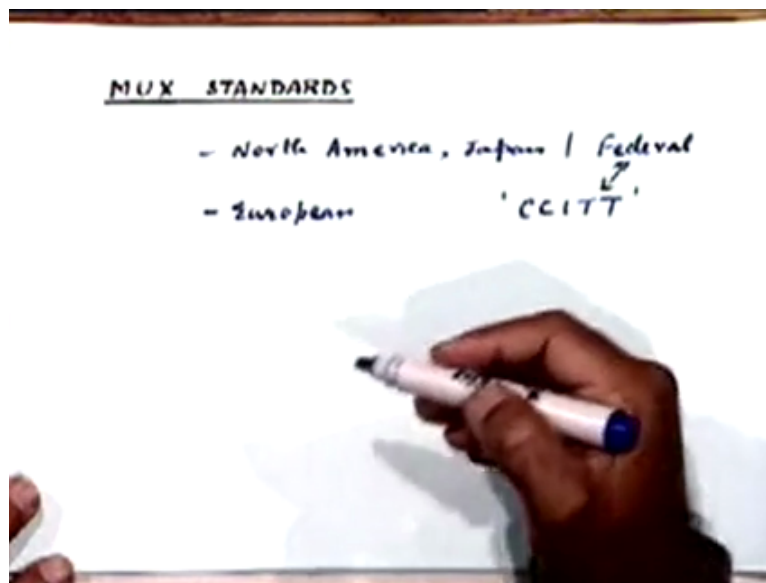 MUX STANDARDS
- North America, Japan | Federal
- European 'CCITT'